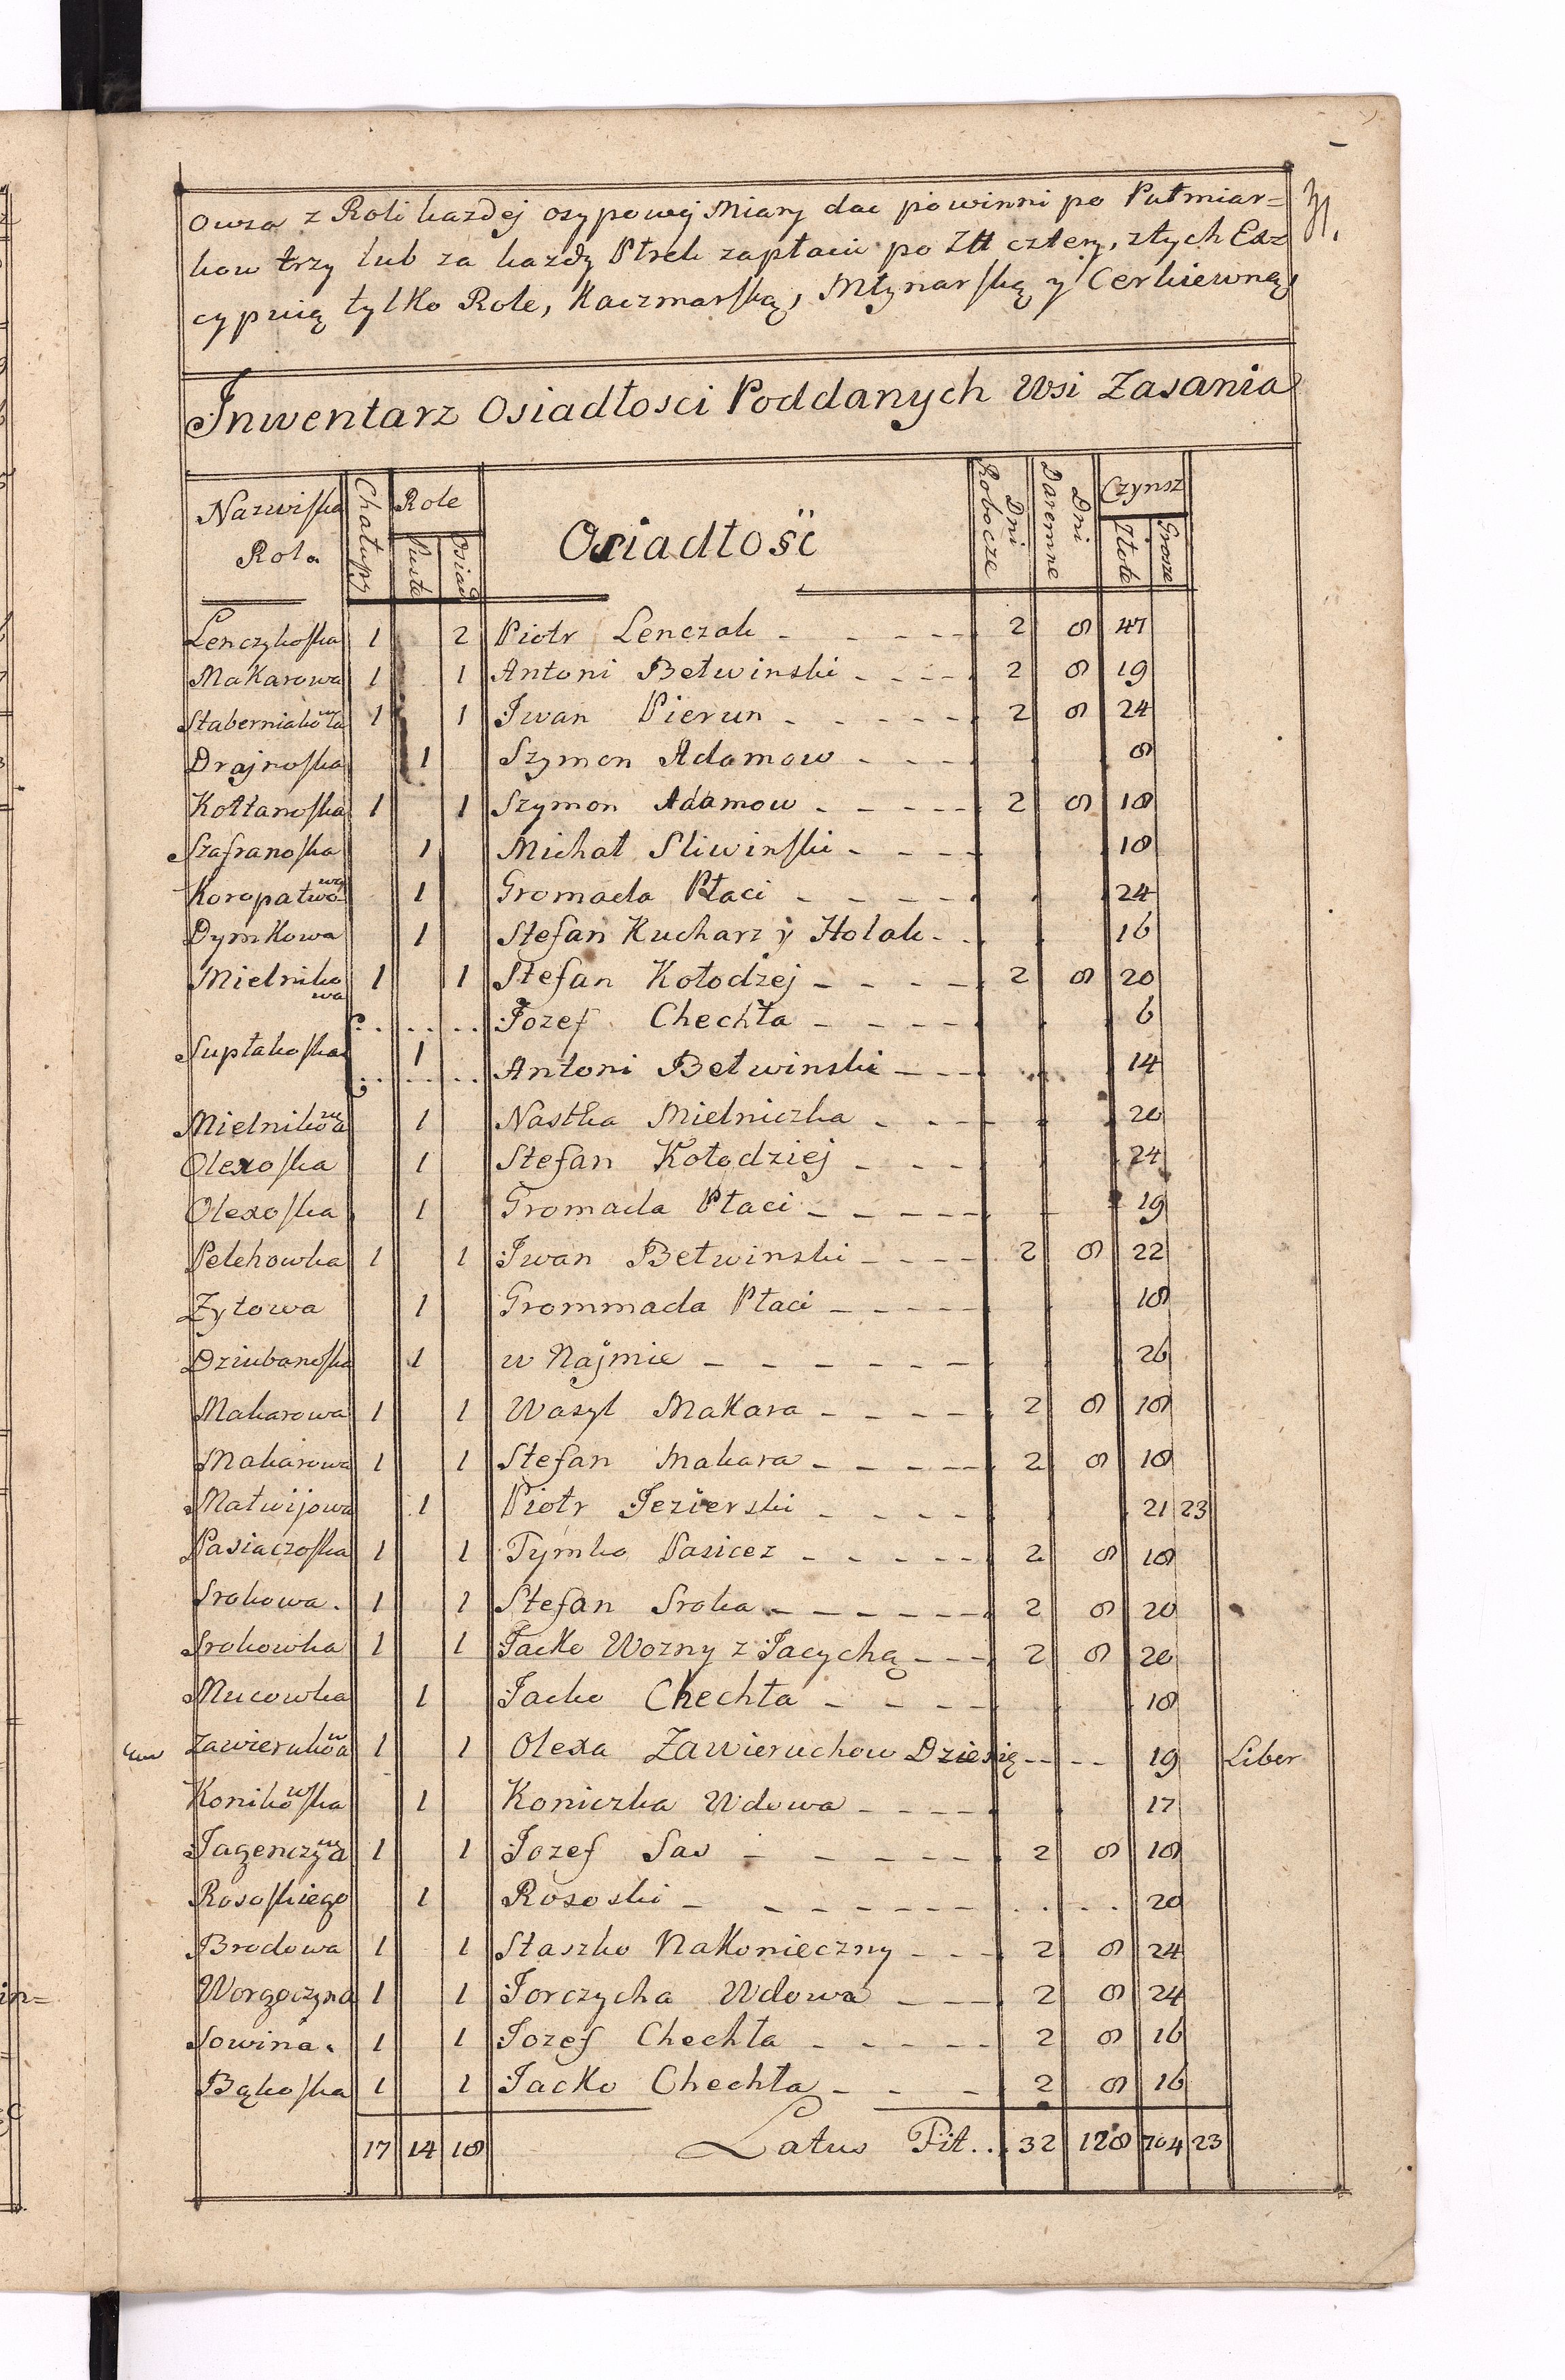 31.
Owsa z Roli każdej osypowej Miary dac powinni po Pułmiar=
kow trzy lub za każdy Ptrek zapłacic po Ztt cztery, z tych Exz
cypuią tylko Role, Kaczmarską, Młynarską y Cerkiewną,
Inwentarz Osiadłosci Poddanych Wsi Zasania
Nazwiska Rola | Chałupy | Role Puste | Osiad | Osiadłość | Dni Robocze | Dni Daremne | Czynsz Złote | Grosze
Lenczykoska 1 2 Piotr Lenczak - - - - - 2 8 47
Makarowa 1 1 Antoni Betwinski - - - - 2 8 19
Staberniakowa 1 1 Iwan Pierun - - - - - 2 8 24
Drajnoska 1 Szymon Adamow - - - 8
Kołtanoska 1 1 Szymon Adamow - - - - - 2 8 18
Szafranoska 1 Michał Sliwinski - - - - 18
Koropatwowa 1 Gromada Płaci - - - - - 24
Dymkowa 1 Stefan Kucharz y Holak - . 16
Mielnikowa 1 1 Stefan Kołodzej - - - - 2 8 20
Jozef Chechła - - - - 6
Supłakoska 1
Antoni Betwinski - - - 14
Mielnikowa 1 Nastka Mielniczka - - - - 20
Olexoska 1 Stefan Kołodziej - - - - 24
Olexoska 1 Gromada Płaci - - - - - 19
Pelehowka 1 1 Iwan Betwinski - - - - 2 8 22
Zytowa 1 Grommada Płaci - - - - - 18
Dziubanoska 1 w Najmie - - - - - - 26
Makarowa 1 1 Wasyl Makara - - - - 2 8 18
Makarowa 1 1 Stefan Makara - - - - - 2 8 18
Matwijowa 1 Piotr Jezierski - - - - 21 23
Pasiaczoska 1 1 Tymko Pasicez - - - - - 2 8 18
Srokowa . 1 1 Stefan Sroka - - - - - - 2 8 20
Srokowka 1 1 Jacko Wozny z Jacychą - - - 2 8 20
Mucowka 1 Jacko Chechła - - - - 18
Zawierukowa 1 1 Olexa Zawieruchow Dziesię - - - - 19 Liber
Konikowska 1 Koniczka Wdowa - - - - 17
Jagenczyna 1 1 Jozef Sas - - - - - 2 8 18
Rososkiego 1 Rososki - - - - - - 20
Brodowa 1 1 Staszko Nakonieczny - - - 2 8 24
Worgoczyna 1 1 Jorczycha Wdowa - - - 2 8 24
Sowina . 1 1 Jozef Chechła - - - - - 2 8 16
Bąkoska 1 1 Jacko Chechła - - - 2 8 16
17 14 18 Latus Fit . . 32 128 704 23